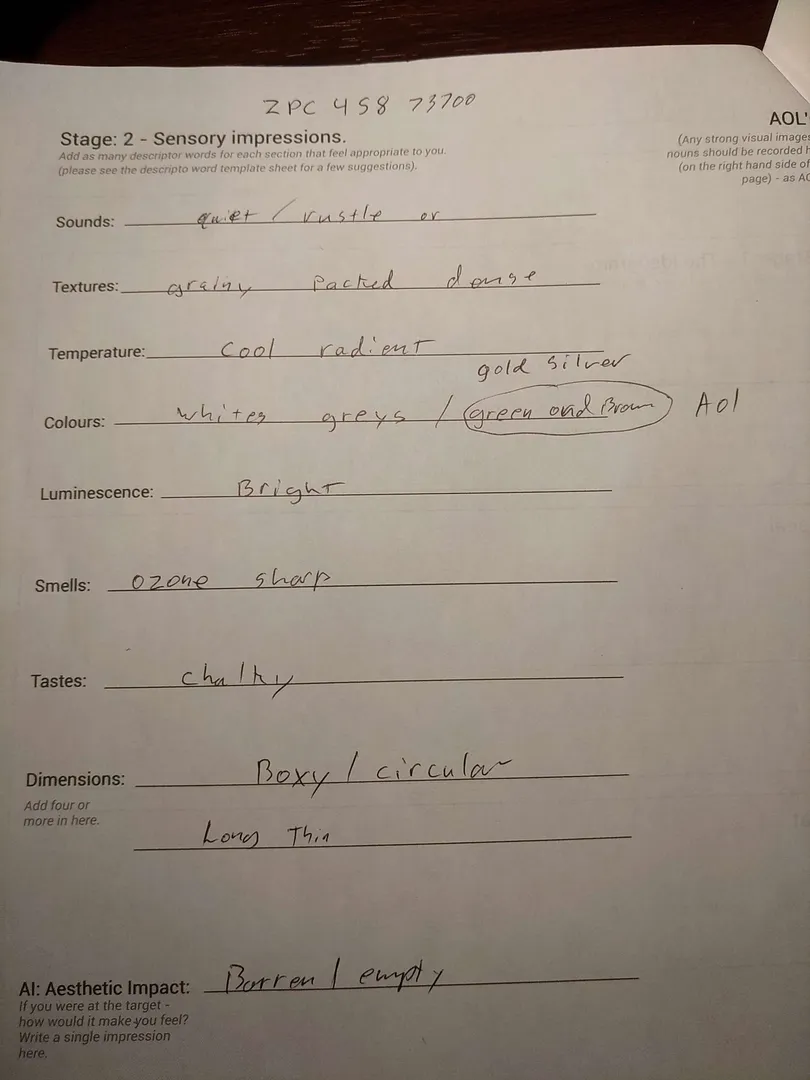 ZPC 458 73700
AOL'
Stage: 2 - Sensory impressions.
(Any strong visual images
Add as many descriptor words for each section that feel appropriate to you.
nouns should be recorded h
(please see the descripto word template sheet for a few suggestions).
(on the right hand side of
page) - as AO
Sounds: quiet / rustle or
Textures: grainy Packed dense
Temperature: Cool radient
gold silver
Colours: whites greys / green and Brown AOl
Luminescence: Bright
Smells: ozone sharp
Tastes: chalky
Dimensions: Boxy / circular
Add four or
more in here.
Long Thin
AI: Aesthetic Impact: Barren / empty
If you were at the target -
how would it make you feel?
Write a single impression
here.